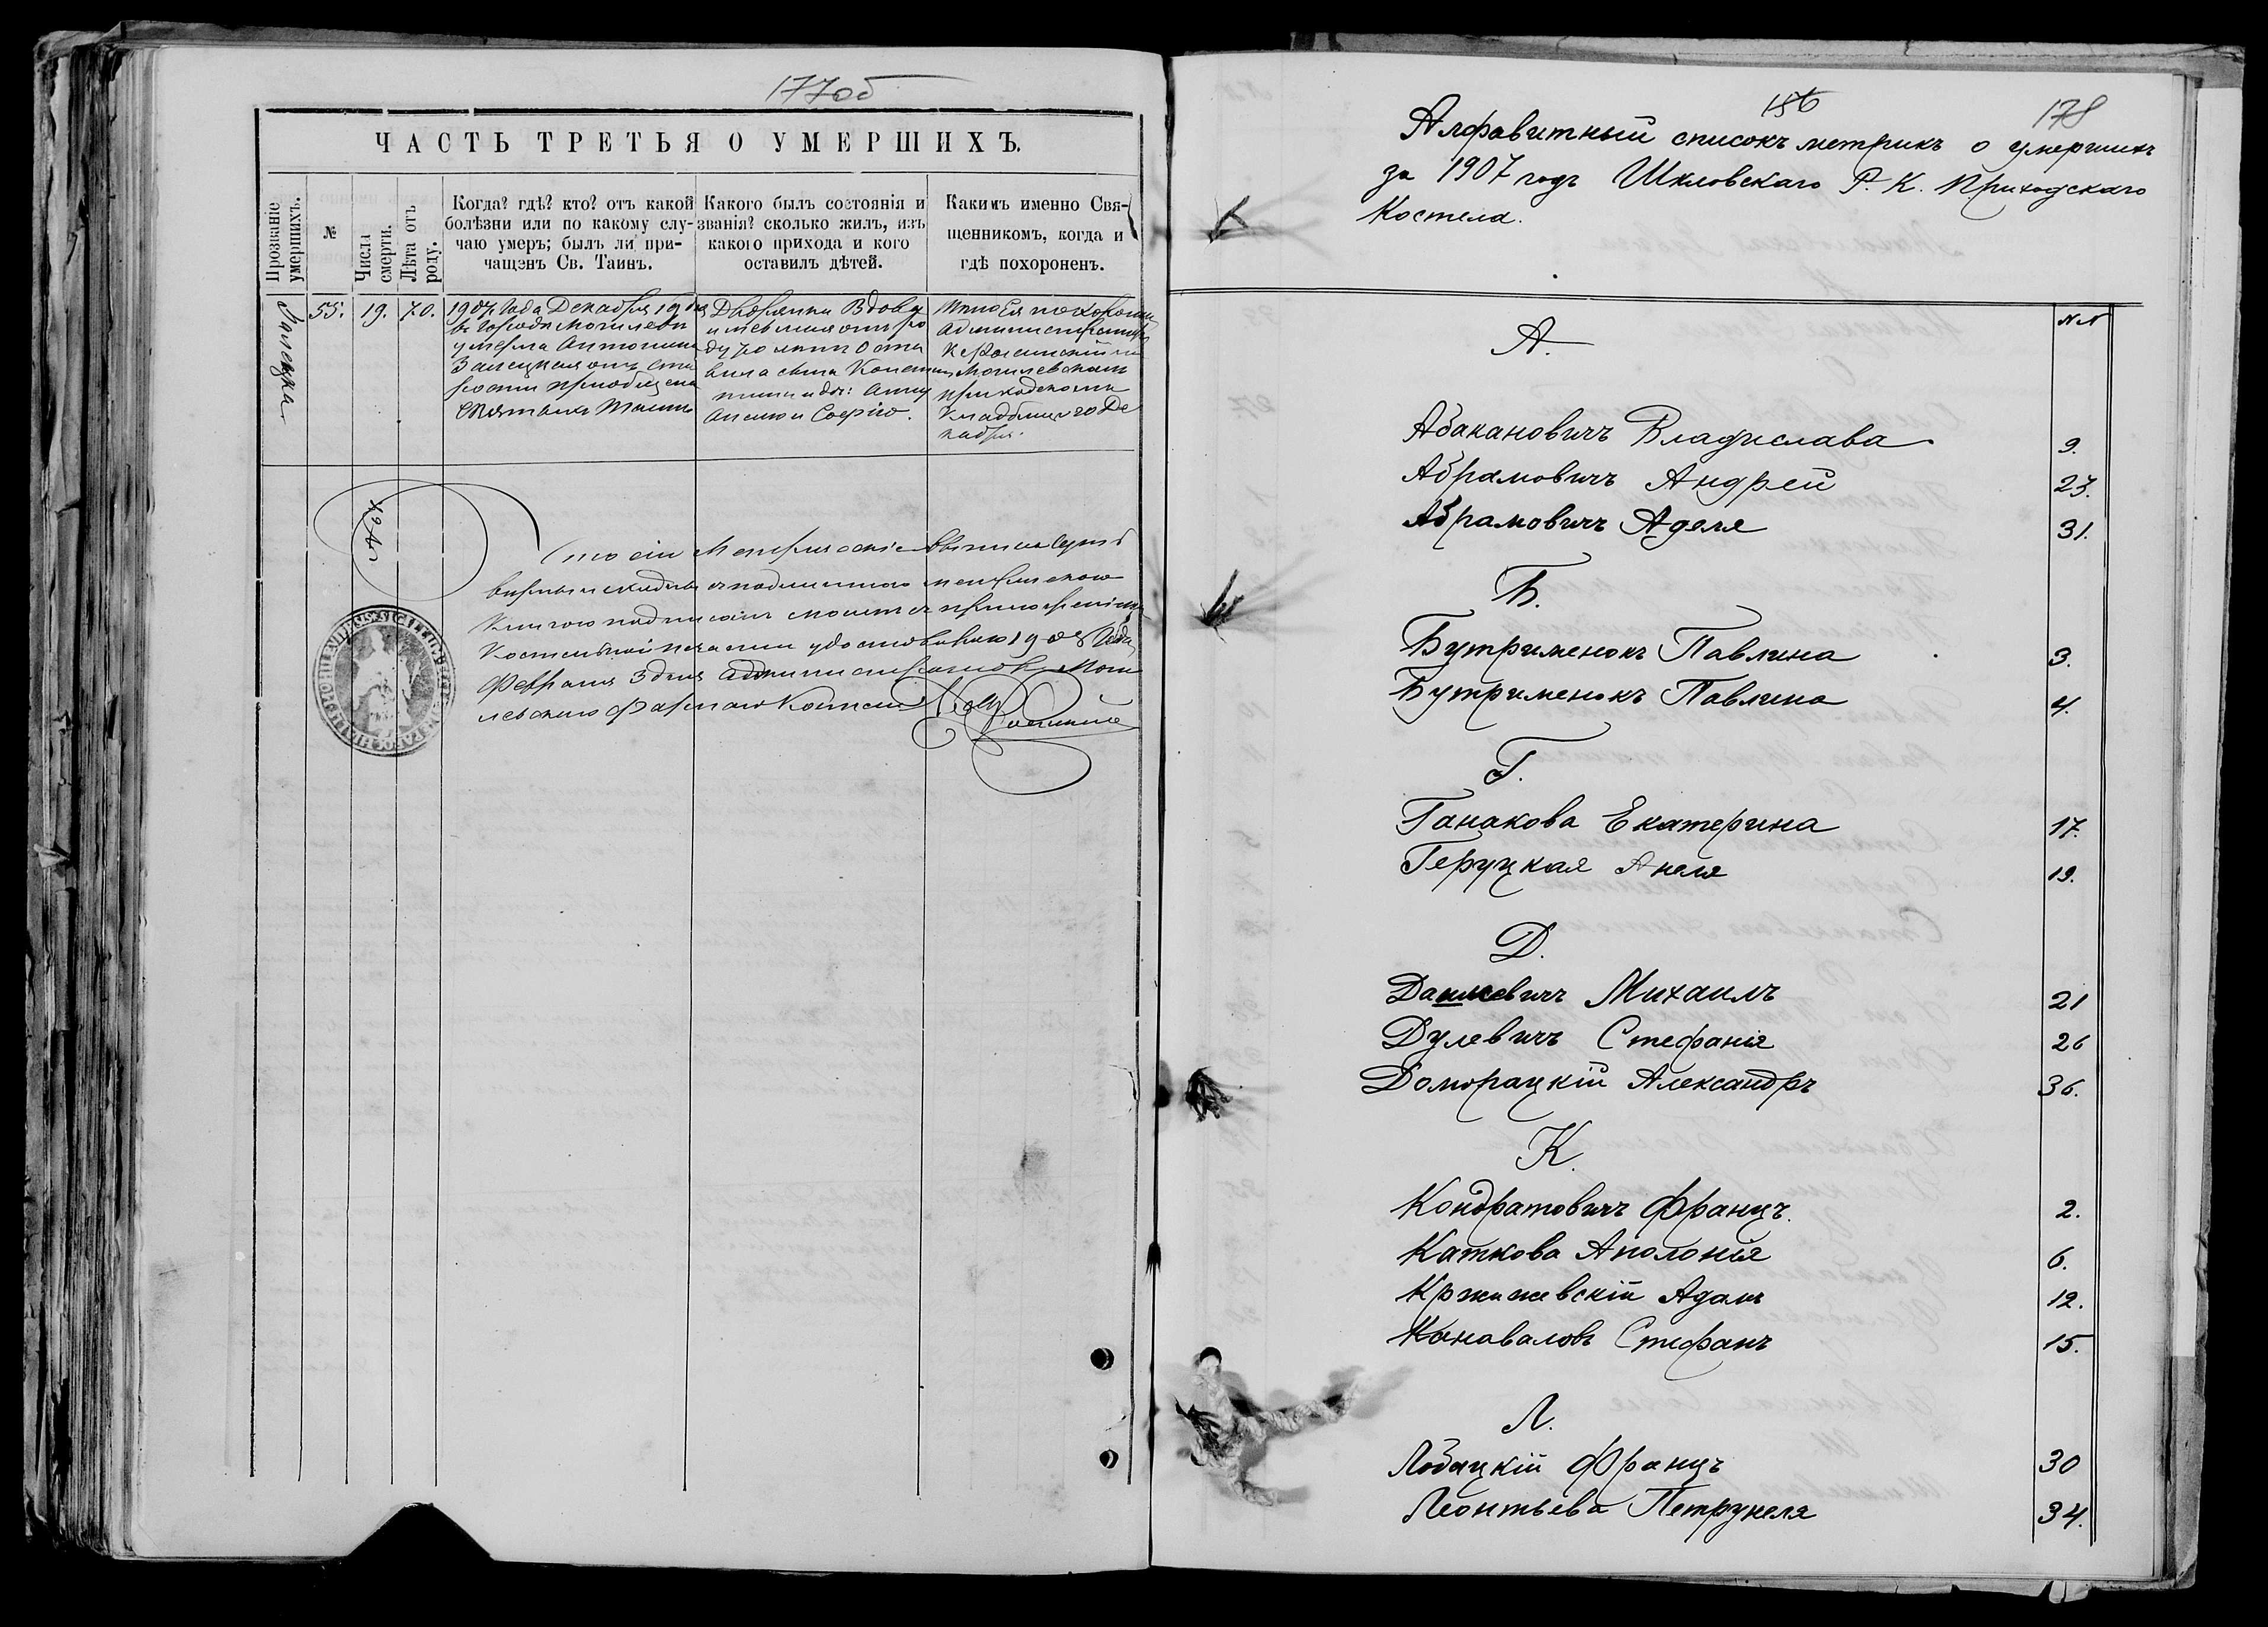 177об
ЧАСТЬ ТРЕТЬЯ О УМЕРШИХЪ.
Прозваніе умершихъ.
№
Числа смерти.
Лѣта отъ роду.
Когда? гдѣ? кто? отъ какой
болѣзни или по какому слу-
чаю умеръ; былъ ли при-
чащенъ Св. Таинъ.
Какого былъ состоянія и
званія? сколько жилъ, изъ
какого прихода и кого
оставилъ дѣтей.
Какимъ именно Свя-
щенникомъ, когда и
гдѣ похороненъ.
Залецка
55.
19.
70.
1907 Года Декабря 19 дня
въ городѣ Могилевѣ
умерла Антонина
Залецкая отъ ста
рости приобщена
Святыхъ Таинъ
Дворянка Вдова
имѣвшая отъ ро
ду 70 лѣтъ Оста
вила сына Констан
тина и доч: Анну
Анелю и Софію.
Тѣло Ея похоронилъ
Администраторъ
на Могилевскомъ
приходскомъ
Кладбищѣ 20 Де
кабря.
Что сіи Метрическіе выписи суть
вѣрны и сходны съ подлинною метрическою
Книгою подписомъ моимъ съ приложеніемъ
Костельной печати удостовѣряю 1908 Года
Февраля 3 дня Администраторъ Моги
левскаго Фарнаго Костела
156
178
Алфавитный списокъ метрикъ о умершихъ
за 1907 годъ Шкловскаго Р. К. Приходскаго
Костела.
А. №№
Абакановичъ Владислава 9.
Абрамовичъ Андрей 23.
Абрамовичъ Аделя 31.
Б.
Бутрименокъ Павлина 3.
Бутрименокъ Павлина 4.
Г.
Ганакова Екатерина 17.
Геруцкая Анеля 19.
Д.
Данилевичъ Михаилъ 21
Дулевичъ Стефанія 26
Доморацкій Александръ 36.
К.
Кондратовичъ Францъ. 2.
Каткова Аполонія 6.
Кржижевскій Адамъ 12.
Коноваловъ Стефанъ 15.
Л.
Лобацкій Францъ 30
Леонтьева Петрунеля 34.